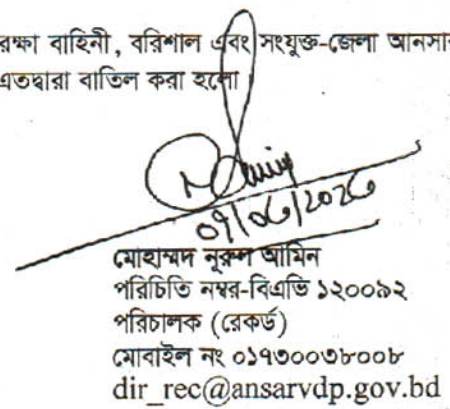 রক্ষা বাহিনী, বরিশাল এবং সংযুক্ত-জেলা আনসার
এতদ্বারা বাতিল করা হলো
09/06/2026
মোহাম্মদ নূরুল আমিন
পরিচিতি নম্বর-বিএভি ১২০০৯২
পরিচালক (রেকর্ড)
মোবাইল নং ০১৭৩০০৩৮০০৮
dir_rec@ansarvdp.gov.bd